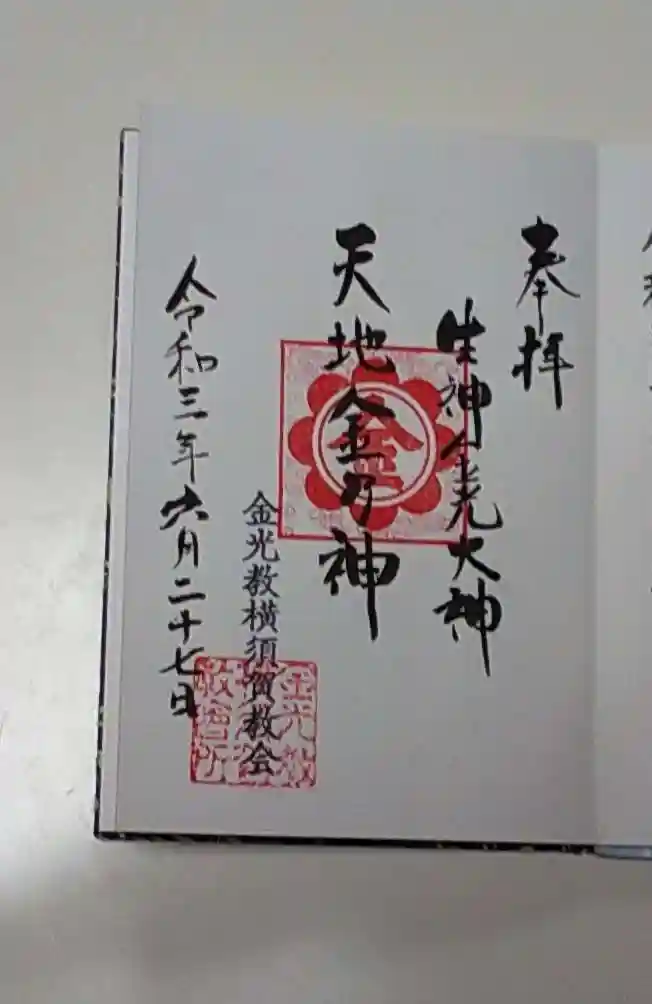 奉拝
生神金光大神
天地金乃神
金光教横須賀教会
令和三年六月二十七日
金